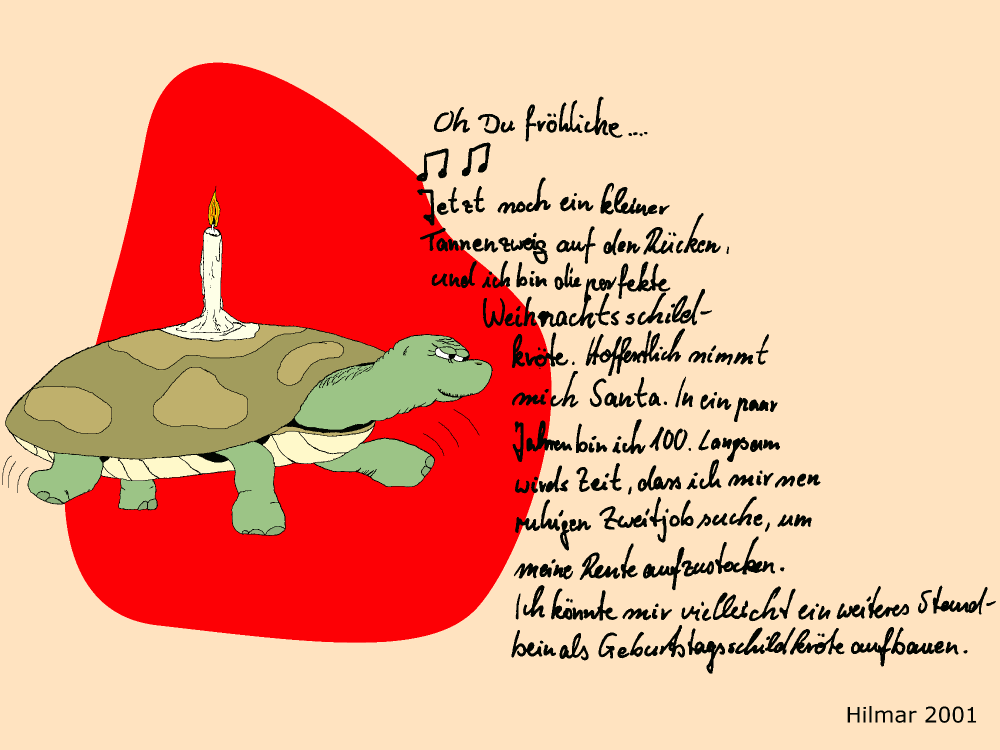 Oh Du fröhliche....
Jetzt noch ein kleiner
Tannenzweig auf den Rücken,
und ich bin die perfekte
Weihnachtsschild-
kröte. Hoffentlich nimmt
mich Santa. In ein paar
Jahren bin ich 100. Langsam
wirds Zeit, dass ich mir nen
ruhigen Zweitjob suche, um
meine Rente aufzustocken.
Ich könnte mir vielleicht ein weiteres Stand-
bein als Geburtstagsschildkröte aufbauen.
Hilmar 2001